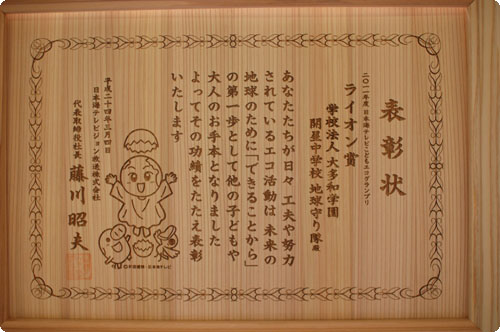 表彰状
二〇一一年度 日本海テレビこどもエコグランプリ
ライオン賞
学校法人 大多和学園
開星中学校 地球守り隊殿
あなたたちが日々工夫や努力
されているエコ活動は未来の
地球のために「できることから」
の第一歩として他の子どもや
大人のお手本となりました
よってその功績をたたえ表彰
いたします
平成二十四年三月四日
日本海テレビジョン放送株式会社
代表取締役社長 藤川昭夫